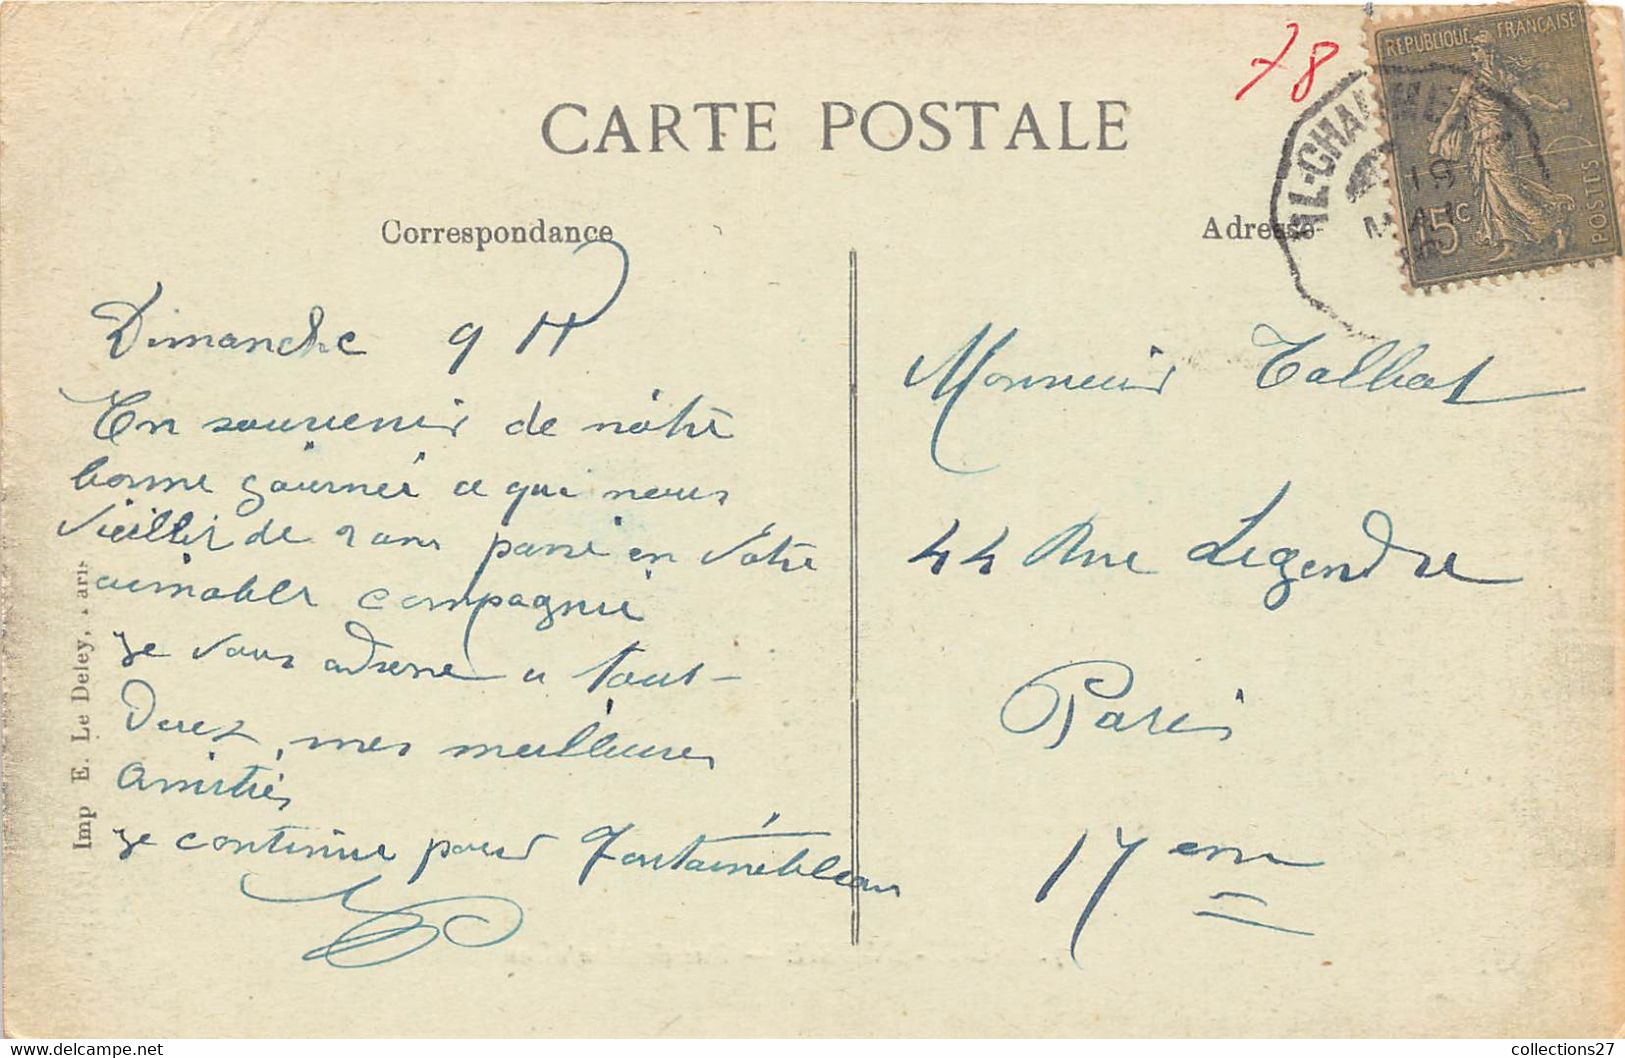 78
RÉPUBLIQUE FRANÇAISE
POSTES
15c
19
CARTE POSTALE
Correspondance
Adresse
Dimanche 9 H
En souvenir de nôtre
bonne journée ce qui nous
vieillis de 2 ans passé en votre
aimable compagnie
je vous adresse a tous
Deux, mes meilleures
Amitiés
je continue pour Fontainebleau
Monsieur Talbat
44 Rue Legendre
Paris
17 eme
Imp E. Le Deley, Paris
collections27